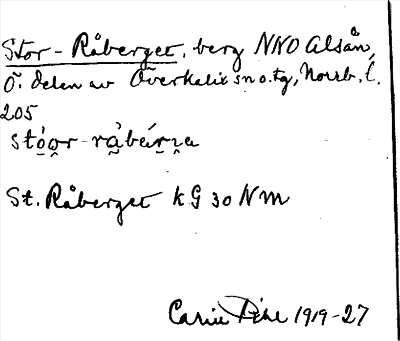 Stor-Råberget, berg NNO Alsån,
Ö. delen av Överkalix sn o. tg, Norrb. l.
205
stóọr-rå̀bár̯ɪa
St. Råberget kG 30 Nm
Carin Pihl 1919-27